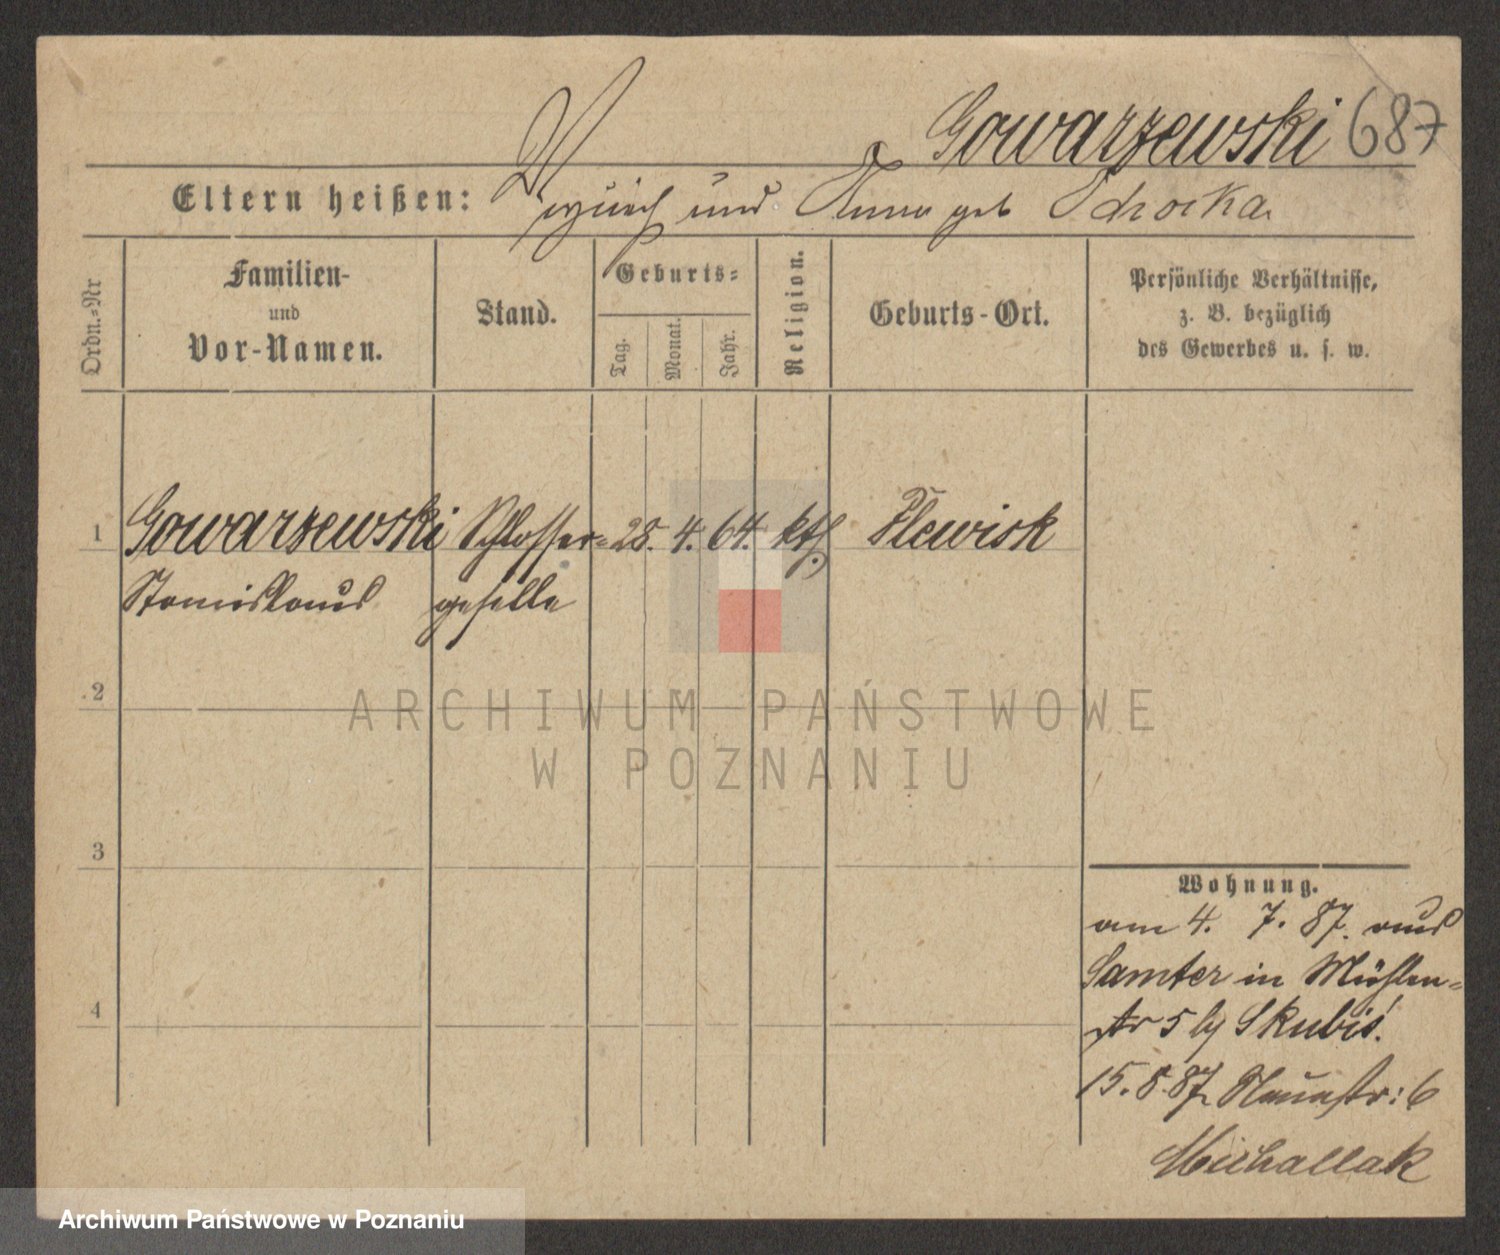 Gowarzewski 687
Eltern heißen: und Anna geb Odrocka
Ordn.-Nr
Familien-
und
Vor-Namen.
Stand.
Geburts-
Tag. Monat. Jahr.
Religion.
Geburts-Ort.
Persönliche Verhältnisse,
z. B. bezüglich
des Gewerbes u. s. w.
1 Gowarzewski Schlosser- 28. 4. 64. kth. Plewisk
Stanislaus geselle
2
3
4
Wohnung.
am 4. 7. 87. aus
Samter in Mühlen-
str 5 by Skubis.
15. 8. 87 Neuestr: 6
Michallak
ARCHIWUM PAŃSTWOWE
W POZNANIU
Archiwum Państwowe w Poznaniu